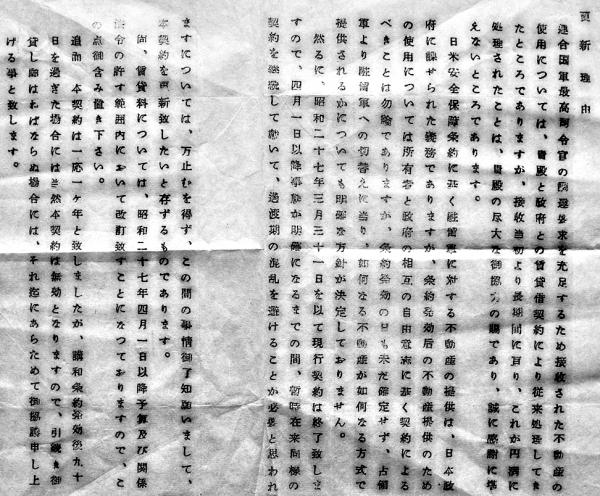 更新理由
連合国軍最高司令官の調達要求を充足するため接收された不動産の
使用については、貴殿と政府との賃貸借契約により従来処理してき
たところでありますが、接收当初より長期間に亘り、これが円満に
処理されたことは、貴殿の尽大な御協力の賜であり、誠に感謝に堪
えないところであります。
日米安全保障条約に基く駐留軍に対する不動産の提供は、日本政
府に課せられた義務でありますが、条約発効后の不動産提供のため
の使用については所有者と政府の相互の自由意志に基く契約による
べきことは勿論でありますが、条約発効の日も未だ確定せず、占領
軍より駐留軍への切替えに当り、如何なる不動産が如何なる方式で
提供されるかについても明確な方針が決定しておりません。
然るに、昭和二十七年三月三十一日を以て現行契約は終了致しま
すので、四月一日以降事態が明確になるまでの間、暫時在来同様の
契約を継続して戴いて、過渡期の混乱を避けることが必要と思われ
ますについては、万止むを得ず、この間の事情御了知願いまして、
本契約を更新致したいと存ずるものであります。
尚、賃貸料については、昭和二十七年四月一日以降予算及び関係
法令の許す範囲内において改訂致すことになつておりますので、こ
の点御含み置き下さい。
追而 本契約は一応一ヶ年と致しましたが、講和条約発効後九十
日を過ぎた場合には当然本契約は無効となりますので、引続き御
貸し願はねばならぬ場合には、それ迄にあらためて御協議申し上
げる事と致します。